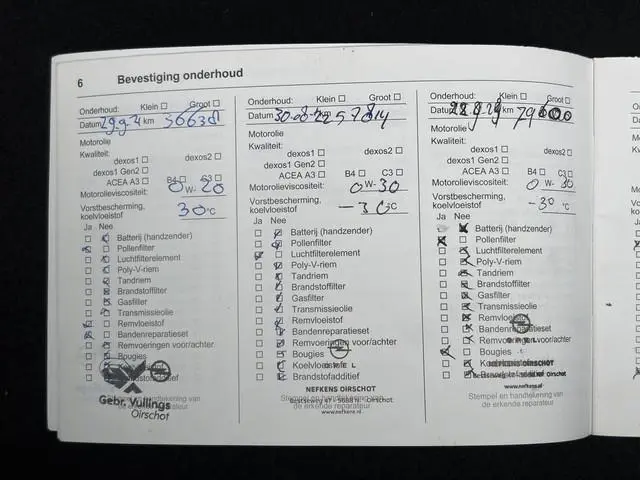 6 Bevestiging onderhoud
Onderhoud: Klein Groot
Datum 29.9.21 km 36638
Motorolie
Kwaliteit:
dexos1 dexos2
dexos1 Gen2
ACEA A3 B4 C3
Motorolieviscositeit: 0 W- 20
Vorstbescherming,
koelvloeistof 30 °C
Ja Nee
Batterij (handzender)
Pollenfilter
Luchtfilterelement
Poly-V-riem
Tandriem
Brandstoffilter
Gasfilter
Transmissieolie
Remvloeistof
Bandenreparatieset
Remvoeringen voor/achter
Bougies
Gebr. Vullings
Oirschot
Onderhoud: Klein Groot
Datum 30-08-22 57814
Motorolie
Kwaliteit:
dexos1 dexos2
dexos1 Gen2
ACEA A3 B4 C3
Motorolieviscositeit: 0 W- 30
Vorstbescherming,
koelvloeistof -30 °C
Ja Nee
Batterij (handzender)
Pollenfilter
Luchtfilterelement
Poly-V-riem
Tandriem
Brandstoffilter
Gasfilter
Transmissieolie
Remvloeistof
Bandenreparatieset
Remvoeringen voor/achter
Bougies
Koelvloeistof
OPEL
Brandstofadditief
NEFKENS OIRSCHOT
Stempel en handtekening van
de erkende reparateur
www.nefkens.nl
Onderhoud: Klein Groot
Datum km
Motorolie
Kwaliteit:
dexos1 dexos2
dexos1 Gen2
ACEA A3 B4 C3
Motorolieviscositeit: 0 W- 30
Vorstbescherming,
koelvloeistof -30 °C
Ja Nee
Batterij (handzender)
Pollenfilter
Luchtfilterelement
Poly-V-riem
Tandriem
Brandstoffilter
Gasfilter
Transmissieolie
Remvloeistof
Bandenreparatieset
Remvoeringen voor/achter
OPEL
Bougies
NEFKENS OIRSCHOT
Oirschot
www.nefkens.nl
Stempel en handtekening van
de erkende reparateur